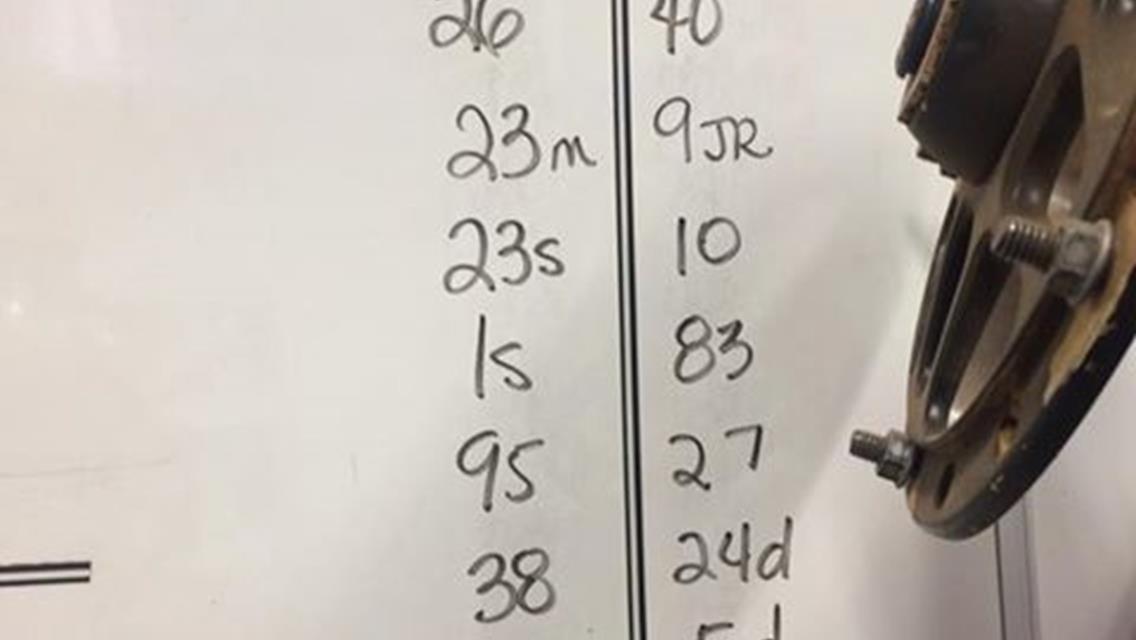 26 40
23m 9JR
23s 10
1s 83
95 27
24d
38
5d